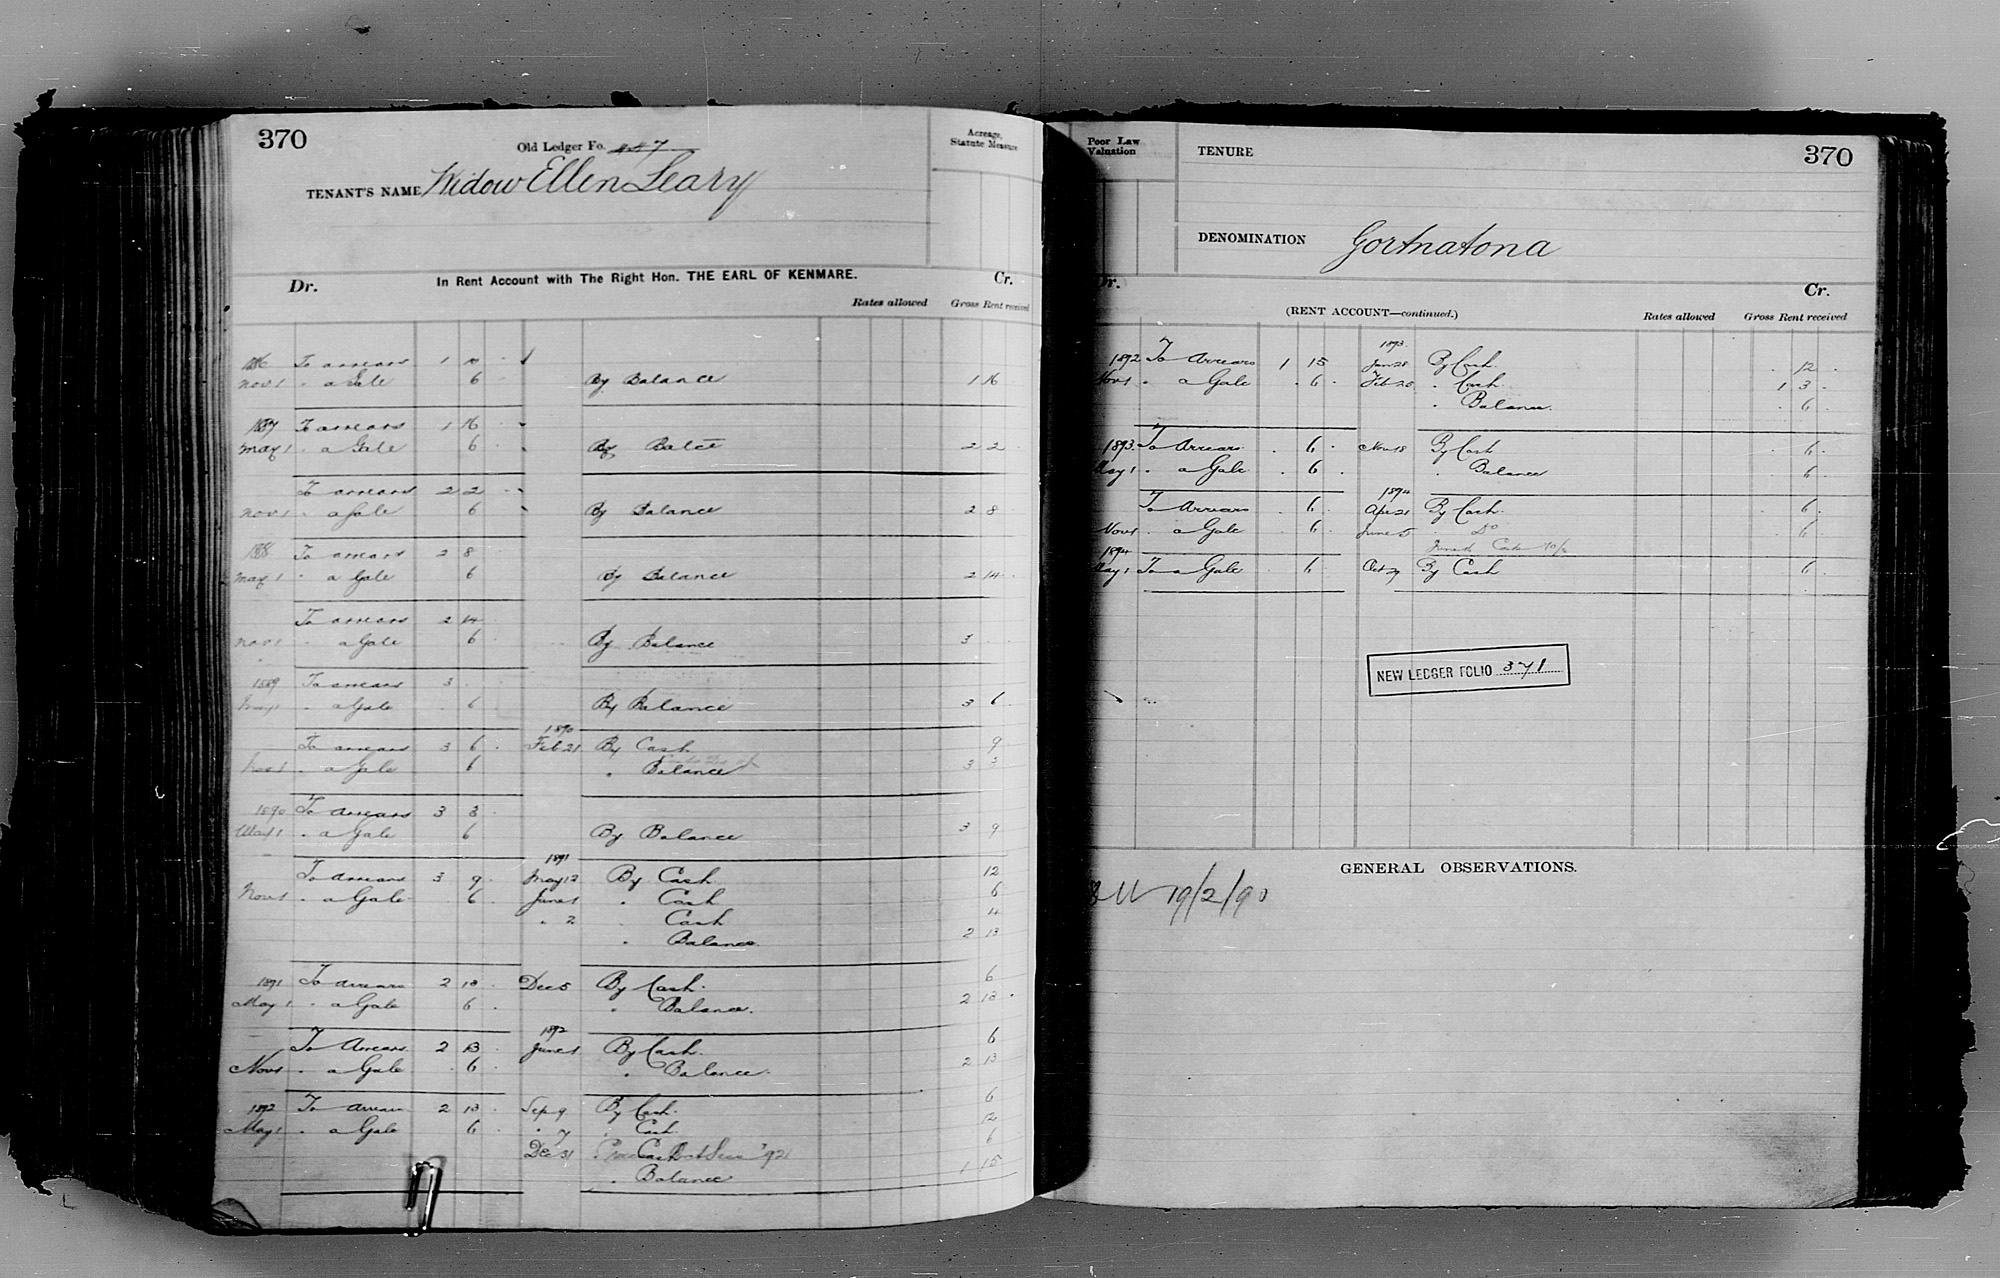 370
Old Ledger Fo. 447
Acreage, Statute Measure
TENANT'S NAME Widow Ellen Leary
Dr. In Rent Account with The Right Hon. THE EARL OF KENMARE. Cr.
Rates allowed Gross Rent received
1886 To arrears 1 10
Nov 1 " a Gale 6 By Balance 1 16
1887 To arrears 1 16
May 1 " a Gale 6 By Balce 2 2
To arrears 2 2
Nov 1 " a Gale 6 By Balance 2 8
1888 To arrears 2 8
May 1 " a Gale 6 By Balance 2 14
To arrears 2 14
Nov 1 " a Gale 6 By Balance 3
1889 To arrears 3
May 1 " a Gale 6 By Balance 3 6
1890
To arrears 3 6 Feb 21 By Cash 9
Nov 1 " a Gale 6 " Balance 3 3
1890 To Arrears 3 3
May 1 " a Gale 6 By Balance 3 9
1891
To Arrears 3 9 May 12 By Cash 12
Nov 1 " a Gale 6 June 1 " Cash 6
" 2 Cash 4
" Balance 2 13
1891 To Arrears 2 13 Dec 5 By Cash 6
May 1 " a Gale 6 " Balance 2 13
1892
To Arrears 2 13 June 1 By Cash 6
Nov 1 " a Gale 6 " Balance 2 13
1892 To Arrears 2 13 Sep 9 By Cash 6
May 1 " a Gale 6 " 7 Cash 12
Dec 31 Cash '92 6
" Balance 1 15
Poor Law Valuation
TENURE
370
DENOMINATION Gortnatona
Dr. Cr.
(RENT ACCOUNT—continued.) Rates allowed Gross Rent received
1893
1892 To Arrears 1 15 Jan 28 By Cash 12
Nov 1 " a Gale 6 Feb 20 " Cash 1 3
" Balance 6
1893 To Arrears 6 Nov 18 By Cash 6
May 1 " a Gale 6 " Balance 6
1894
To Arrears 6 Apr 21 By Cash 6
Nov 1 " a Gale 6 June 5 " Do 6
1894
May 1 To a Gale 6 Oct 9 By Cash 6
NEW LEDGER FOLIO 371
GENERAL OBSERVATIONS.
19/2/90